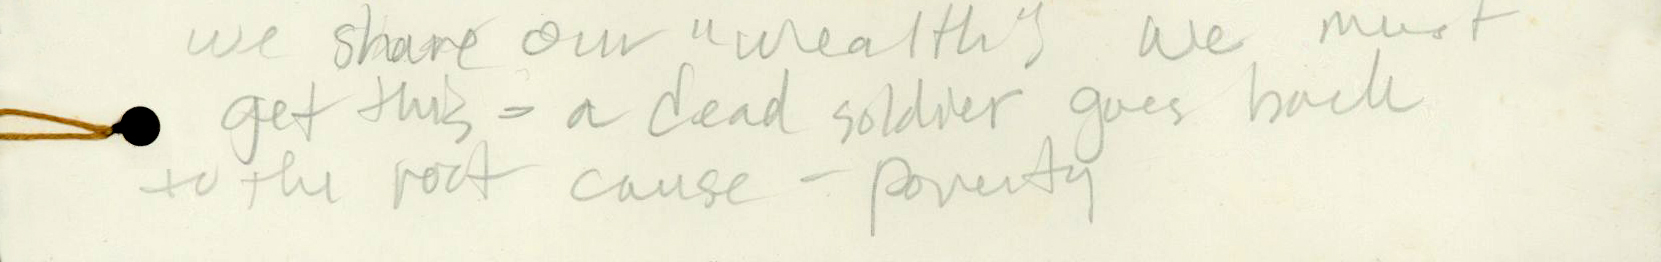 we share our "wealth" we must
get this - a dead soldier goes back
to the root cause - poverty